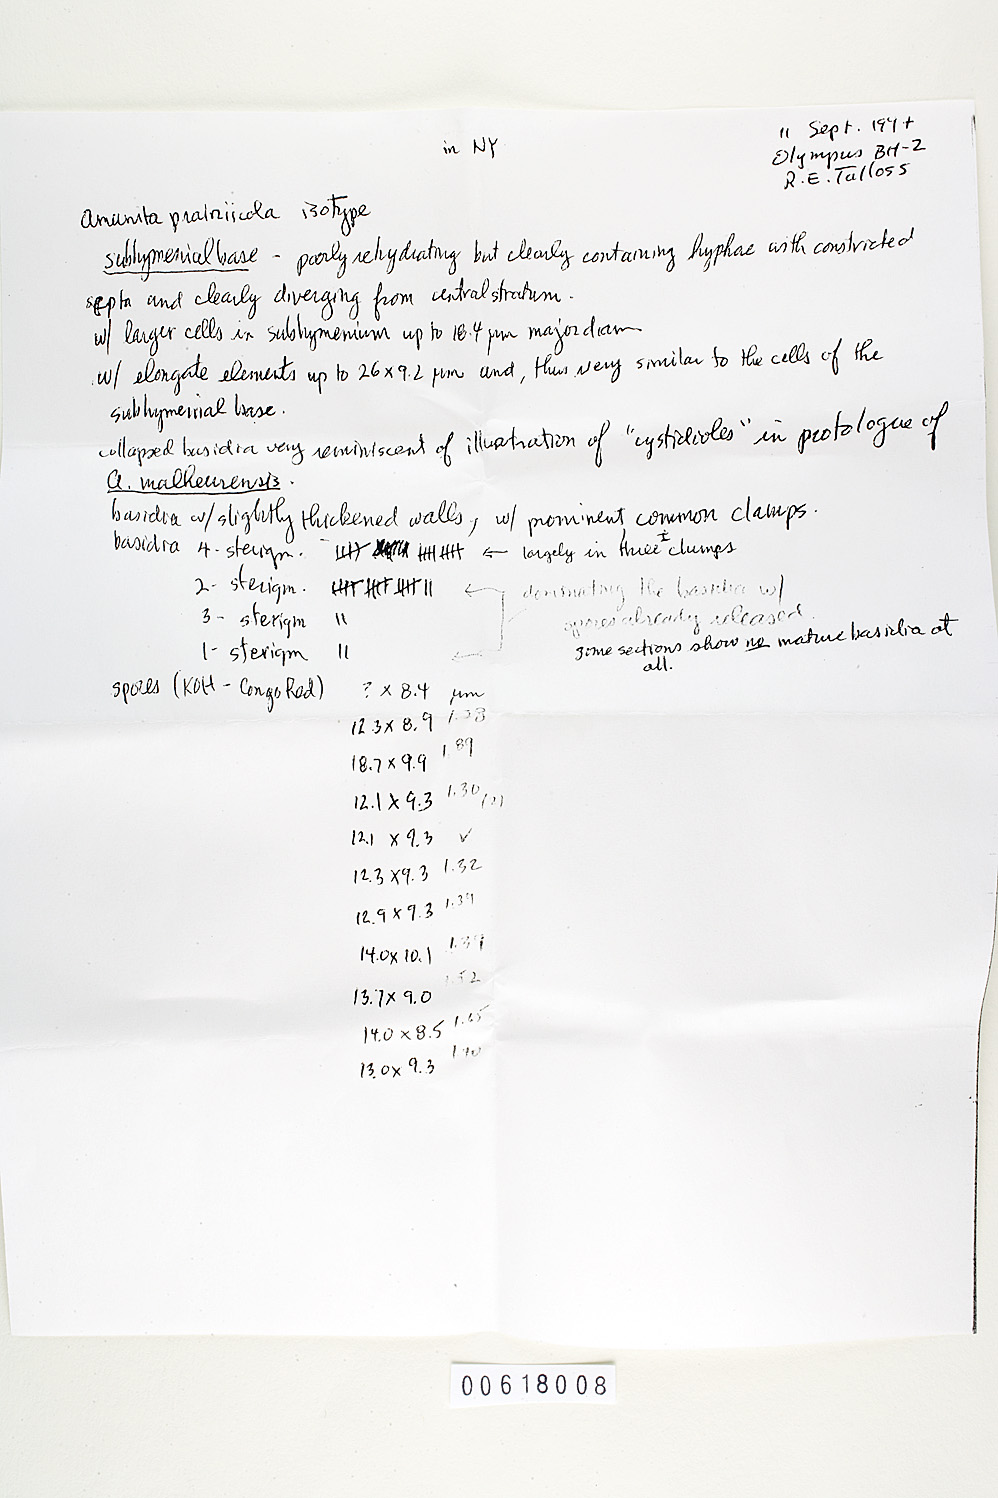 in NY
11 Sept. 1994
Olympus BH-2
R.E. Tulloss
Amanita prairiicola isotype
subhymenial base - poorly rehydrating but clearly containing hyphae with constricted
septa and clearly diverging from central stratum.
w/ larger cells in subhymenium up to 18.4 µm major diam
w/ elongate elements up to 26 x 9.2 µm and, thus very similar to the cells of the
subhymenial base.
collapsed basidia very reminiscent of illustration of "cystidioles" in protologue of
A. malheurensis.
basidia w/ slightly thickened walls, w/ prominent, common clamps.
basidia 4-sterigm. ← largely in three ± clumps
2-sterigm. ← dominating the basidia w/
spores already released.
3-sterigm ||
some sections show no mature basidia at
all.
1-sterigm || ←
spores (KOH - Congo Red) ? x 8.4 µm
12.3 x 8.9 1.38
18.7 x 9.9 1.89
12.1 x 9.3 1.30 (2)
12.1 x 9.3 ✓
12.3 x 9.3 1.32
12.9 x 9.3 1.39
14.0 x 10.1 1.39
13.7 x 9.0 1.52
14.0 x 8.5 1.65
13.0 x 9.3 1.40
00618008